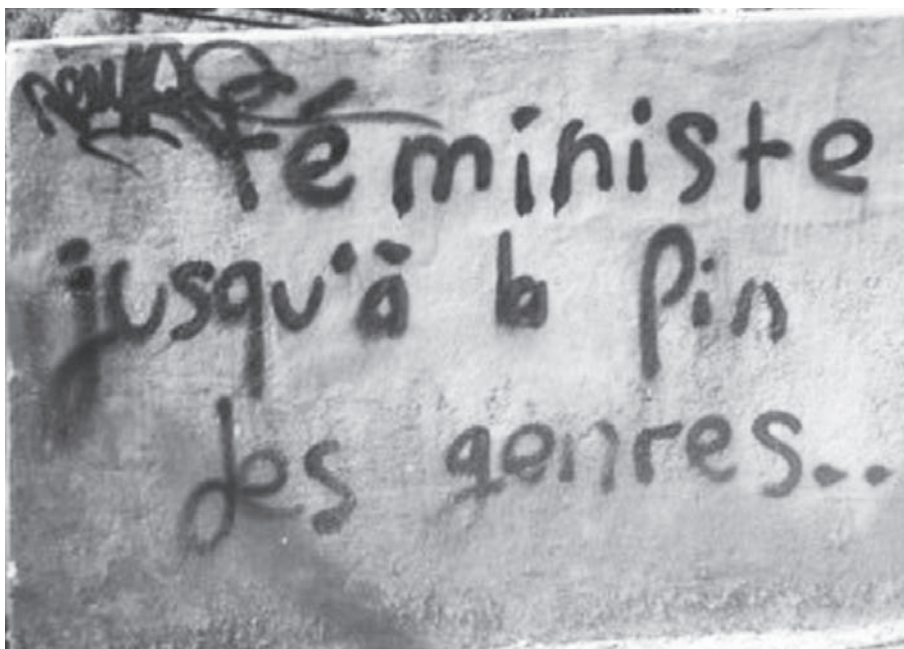 féministe
jusqu'à la fin
des genres..